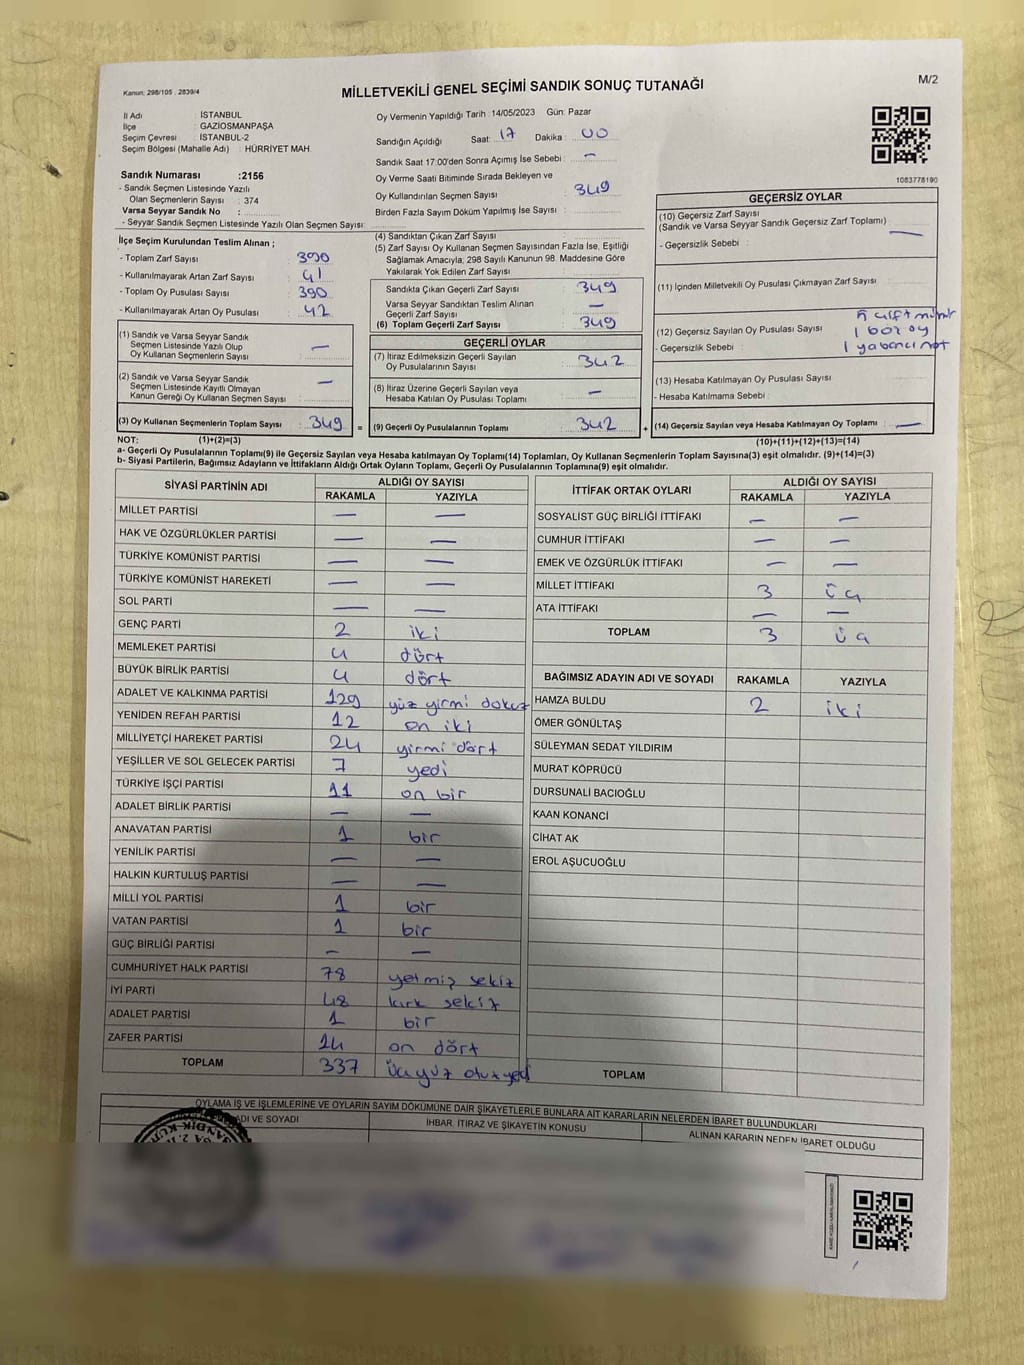 Kanun: 298/105 . 2839/4
MİLLETVEKİLİ GENEL SEÇİMİ SANDIK SONUÇ TUTANAĞI
M/2
İl Adı : İSTANBUL
İlçe : GAZİOSMANPAŞA
Seçim Çevresi : İSTANBUL-2
Seçim Bölgesi (Mahalle Adı) : HÜRRİYET MAH.
Oy Vermenin Yapıldığı Tarih : 14/05/2023 Gün: Pazar
Sandığın Açıldığı Saat: 17 Dakika : 00
Sandık Saat 17:00'den Sonra Açımış İse Sebebi : —
Oy Verme Saati Bitiminde Sırada Bekleyen ve
Oy Kullandırılan Seçmen Sayısı : 349
Birden Fazla Sayım Döküm Yapılmış İse Sayısı :
Sandık Numarası :2156
- Sandık Seçmen Listesinde Yazılı
Olan Seçmenlerin Sayısı : 374
Varsa Seyyar Sandık No :
- Seyyar Sandık Seçmen Listesinde Yazılı Olan Seçmen Sayısı:
1083778190
İlçe Seçim Kurulundan Teslim Alınan ;
- Toplam Zarf Sayısı : 390
- Kullanılmayarak Artan Zarf Sayısı : 41
- Toplam Oy Pusulası Sayısı : 390
- Kullanılmayarak Artan Oy Pusulası : 42
(1) Sandık ve Varsa Seyyar Sandık
Seçmen Listesinde Yazılı Olup
Oy Kullanan Seçmenlerin Sayısı : —
(2) Sandık ve Varsa Seyyar Sandık
Seçmen Listesinde Kayıtlı Olmayan
Kanun Gereği Oy Kullanan Seçmen Sayısı : —
(3) Oy Kullanan Seçmenlerin Toplam Sayısı : 349 =
(4) Sandıktan Çıkan Zarf Sayısı :
(5) Zarf Sayısı Oy Kullanan Seçmen Sayısından Fazla İse, Eşitliği
Sağlamak Amacıyla; 298 Sayılı Kanunun 98. Maddesine Göre
Yakılarak Yok Edilen Zarf Sayısı :
Sandıkta Çıkan Geçerli Zarf Sayısı : 349
Varsa Seyyar Sandıktan Teslim Alınan
Geçerli Zarf Sayısı : —
(6) Toplam Geçerli Zarf Sayısı : 349
GEÇERLİ OYLAR
(7) İtiraz Edilmeksizin Geçerli Sayılan
Oy Pusulalarının Sayısı : 342
(8) İtiraz Üzerine Geçerli Sayılan veya
Hesaba Katılan Oy Pusulası Toplamı : —
(9) Geçerli Oy Pusulalarının Toplamı : 342 +
GEÇERSİZ OYLAR
(10) Geçersiz Zarf Sayısı
(Sandık ve Varsa Seyyar Sandık Geçersiz Zarf Toplamı) : —
- Geçersizlik Sebebi :
(11) İçinden Milletvekili Oy Pusulası Çıkmayan Zarf Sayısı :
(12) Geçersiz Sayılan Oy Pusulası Sayısı : 5 çift mühür
1 boz oy
- Geçersizlik Sebebi : 1 yabancı not
(13) Hesaba Katılmayan Oy Pusulası Sayısı :
- Hesaba Katılmama Sebebi :
(14) Geçersiz Sayılan veya Hesaba Katılmayan Oy Toplamı : —
NOT: (1)+(2)=(3)
(10)+(11)+(12)+(13)=(14)
a- Geçerli Oy Pusulasının Toplamı(9) ile Geçersiz Sayılan veya Hesaba katılmayan Oy Toplamı(14) Toplamları, Oy Kullanan Seçmenlerin Toplam Sayısına(3) eşit olmalıdır. (9)+(14)=(3)
b- Siyasi Partilerin, Bağımsız Adayların ve İttifakların Aldığı Ortak Oyların Toplamı, Geçerli Oy Pusulalarının Toplamına(9) eşit olmalıdır.
SİYASİ PARTİNİN ADI
ALDIĞI OY SAYISI
RAKAMLA YAZIYLA
MİLLET PARTİSİ — —
HAK VE ÖZGÜRLÜKLER PARTİSİ — —
TÜRKİYE KOMÜNİST PARTİSİ — —
TÜRKİYE KOMÜNİST HAREKETİ — —
SOL PARTİ — —
GENÇ PARTİ 2 iki
MEMLEKET PARTİSİ 4 dört
BÜYÜK BİRLİK PARTİSİ 4 dört
ADALET VE KALKINMA PARTİSİ 129 yüz yirmi dokuz
YENİDEN REFAH PARTİSİ 12 on iki
MİLLİYETÇİ HAREKET PARTİSİ 24 yirmi dört
YEŞİLLER VE SOL GELECEK PARTİSİ 7 yedi
TÜRKİYE İŞÇİ PARTİSİ 11 on bir
ADALET BİRLİK PARTİSİ — —
ANAVATAN PARTİSİ 1 bir
YENİLİK PARTİSİ — —
HALKIN KURTULUŞ PARTİSİ — —
MİLLİ YOL PARTİSİ 1 bir
VATAN PARTİSİ 1 bir
GÜÇ BİRLİĞİ PARTİSİ — —
CUMHURİYET HALK PARTİSİ 78 yetmiş sekiz
İYİ PARTİ 48 kırk sekiz
ADALET PARTİSİ 1 bir
ZAFER PARTİSİ 14 on dört
TOPLAM 337 üçyüz otuzyedi
İTTİFAK ORTAK OYLARI
ALDIĞI OY SAYISI
RAKAMLA YAZIYLA
SOSYALİST GÜÇ BİRLİĞİ İTTİFAKI — —
CUMHUR İTTİFAKI — —
EMEK VE ÖZGÜRLÜK İTTİFAKI — —
MİLLET İTTİFAKI 3 üç
ATA İTTİFAKI — —
TOPLAM 3 üç
BAĞIMSIZ ADAYIN ADI VE SOYADI RAKAMLA YAZIYLA
HAMZA BULDU 2 iki
ÖMER GÖNÜLTAŞ
SÜLEYMAN SEDAT YILDIRIM
MURAT KÖPRÜCÜ
DURSUNALİ BACIOĞLU
KAAN KONANCİ
CİHAT AK
EROL AŞUCUOĞLU
TOPLAM
OYLAMA İŞ VE İŞLEMLERİNE VE OYLARIN SAYIM DÖKÜMÜNE DAİR ŞİKAYETLERLE BUNLARA AİT KARARLARIN NELERDEN İBARET BULUNDUKLARI
ADI VE SOYADI
İHBAR, İTİRAZ VE ŞİKAYETİN KONUSU
ALINAN KARARIN NEDEN İBARET OLDUĞU